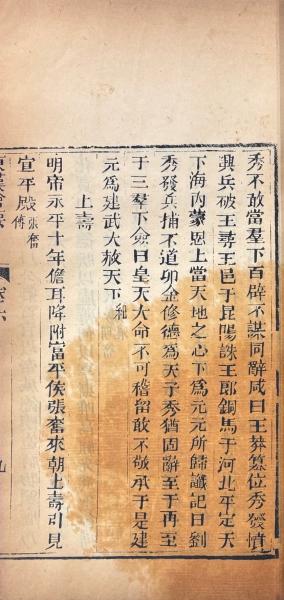 秀不敢當羣下百辟不謀同辭咸曰王莽篡位秀發憤
興兵破王尋王邑于昆陽誅王郎銅馬于河北平定天
下海內蒙恩上當天地之心下爲元元所歸讖記曰劉
秀發兵捕不道卯金修德爲天子秀猶固辭至于再至
于三羣下僉曰皇天大命不可稽留敢不敬承于是建
元爲建武大赦天下
上壽
明帝永平十年儋耳降附富平侯張奮來朝上壽引見
宣平殿張奮傳